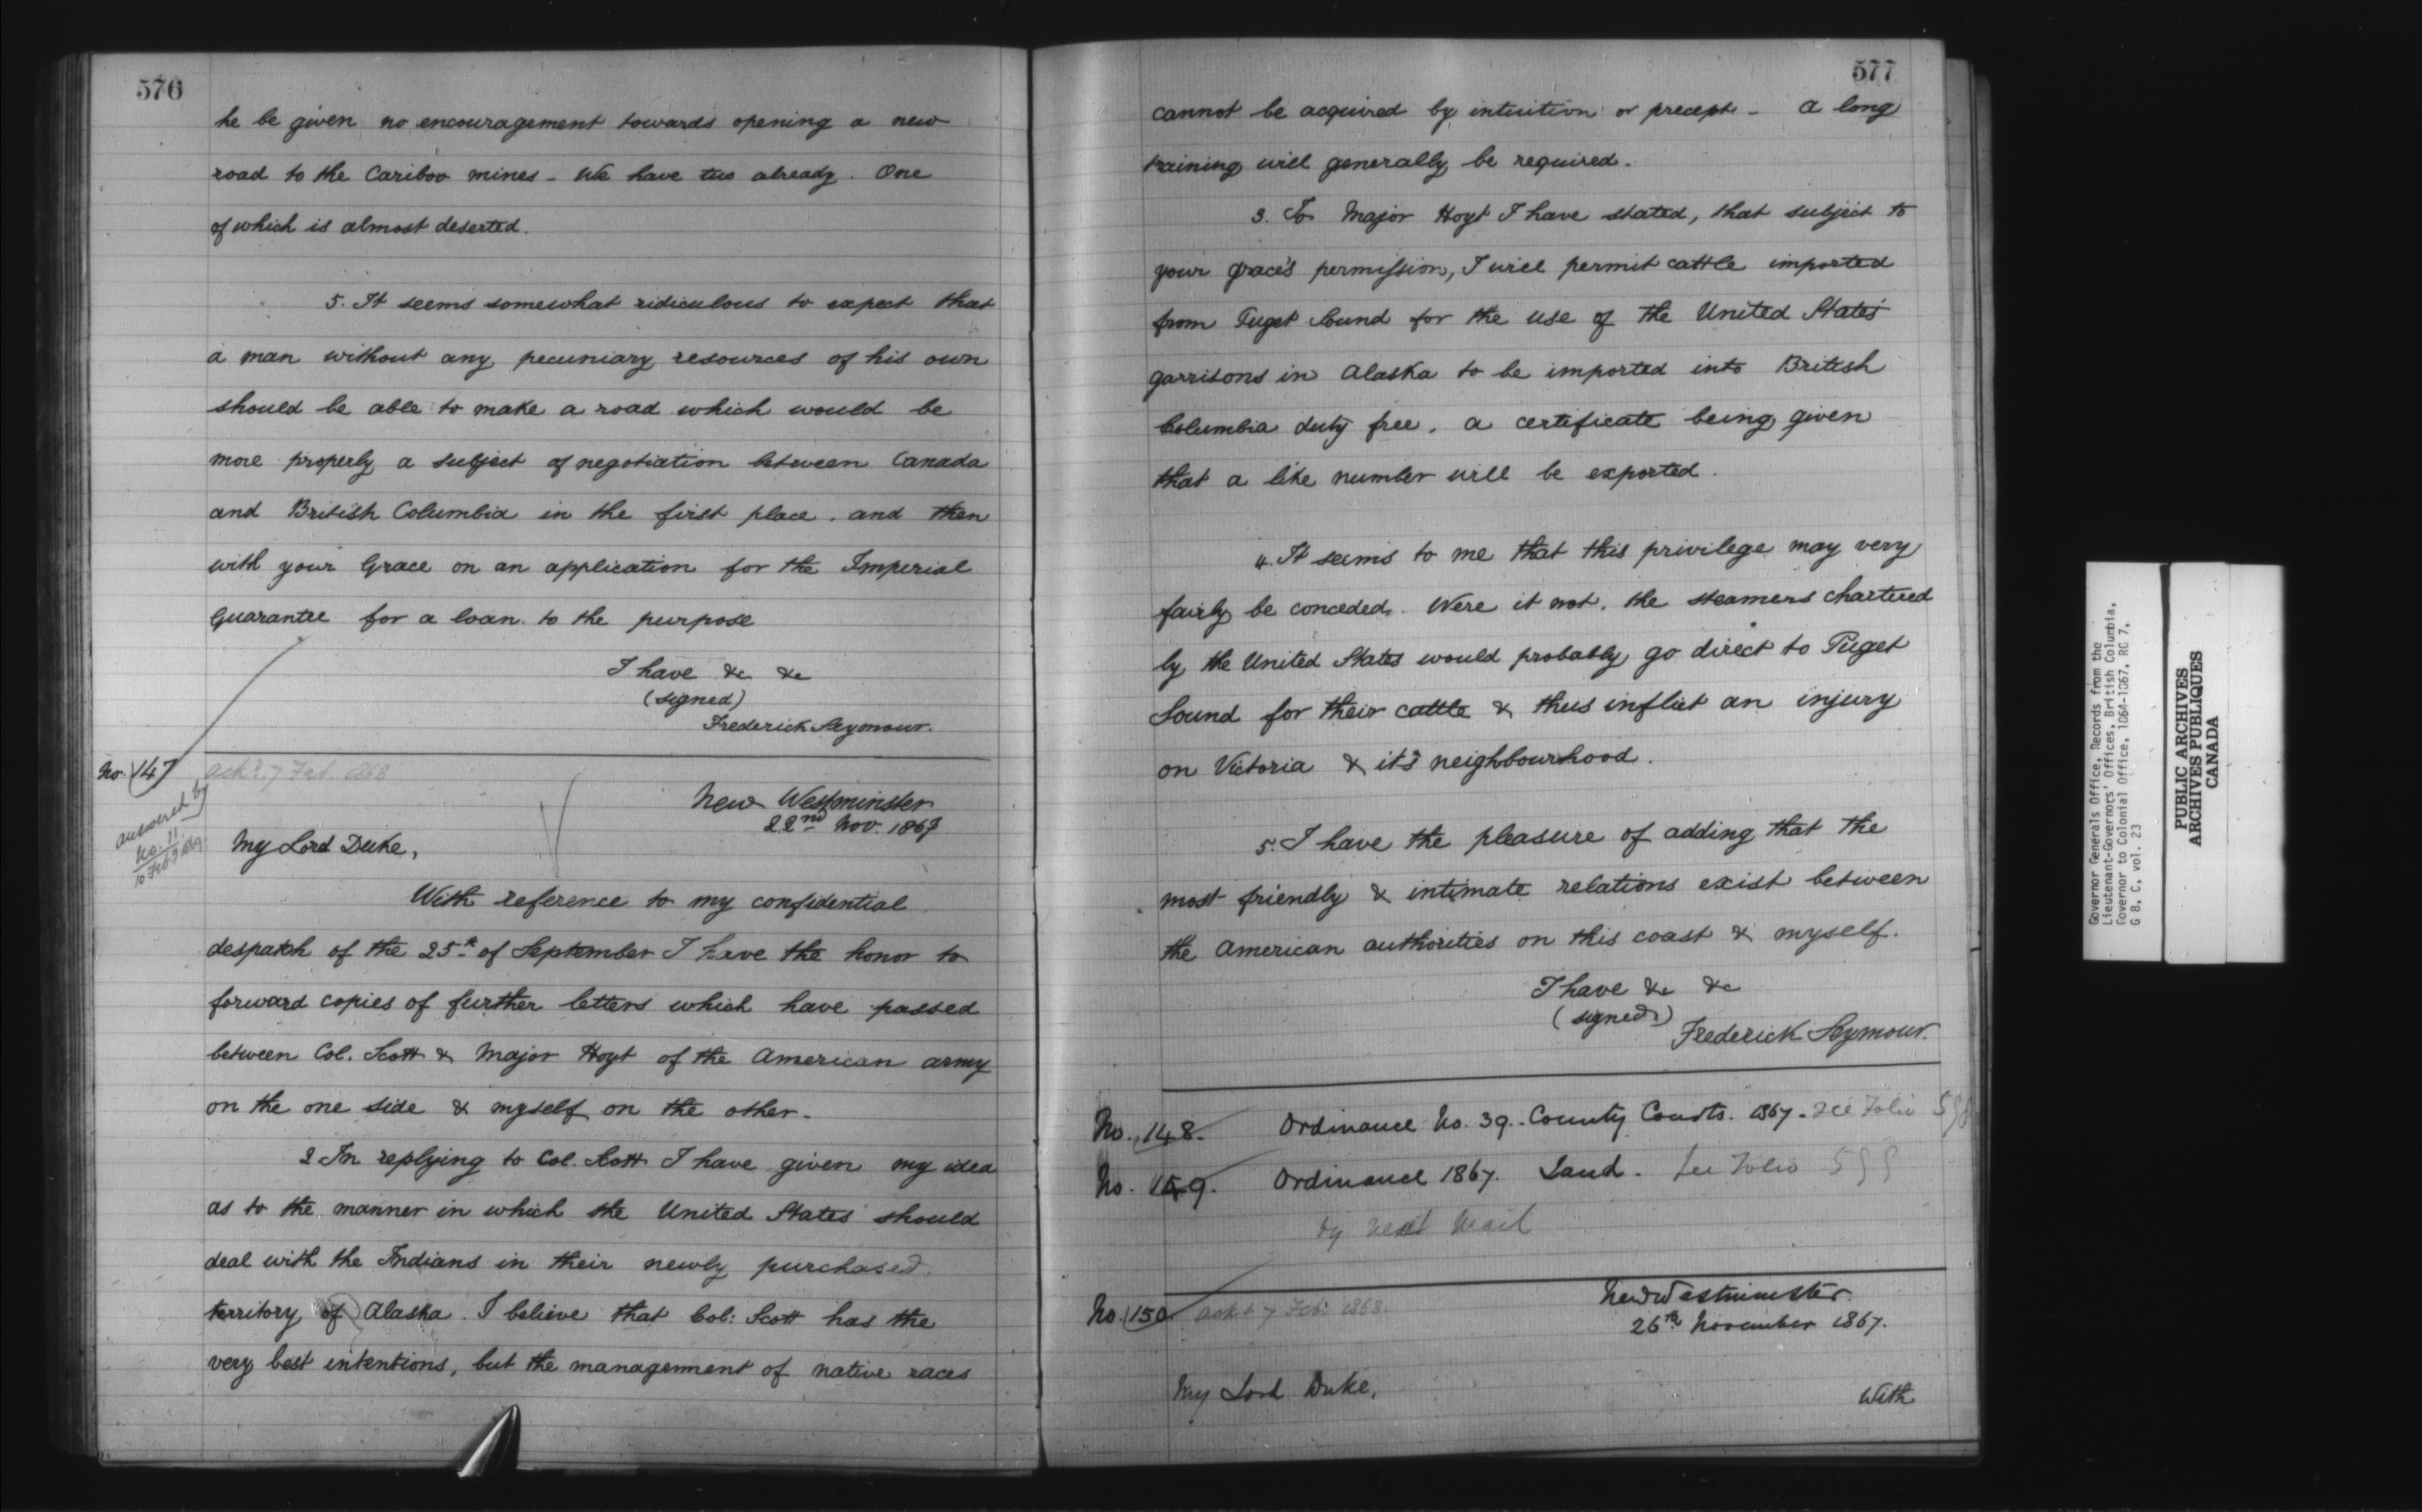 576
he be given no encouragement towards opening a new
road to the Cariboo mines - We have two already. One
of which is almost deserted.
5. It seems somewhat ridiculous to expect that
a man without any pecuniary resources of his own
should be able to make a road which would be
more properly a subject of negotiation between Canada
and British Columbia in the first place. and then
with your Grace on an application for the Imperial
Guarantee for a loan to the purpose
I have &c &c
(signed)
Frederick Seymour.
No. 147 ackd. 7 Feb. 1868
answered by
No. 11.
New Westminster
22nd Nov. 1867
My Lord Duke,
With reference to my confidential
despatch of the 25th of September I have the honor to
forward copies of further letters which have passed
between Col. Scott & Major Hoyt of the American army
on the one side & myself on the other.
2 In replying to Col. Scott I have given my idea
as to the manner in which the United States should
deal with the Indians in their newly purchased
territory of Alaska. I believe that Col: Scott has the
very best intentions, but the management of native races
577
cannot be acquired by intuition or precept - a long
training will generally be required.
3. To Major Hoyt I have stated, that subject to
your Grace's permission, I will permit cattle imported
from Puget Sound for the use of the United States'
garrisons in Alaska to be imported into British
Columbia duty free. a certificate being given
that a like number will be exported.
4. It seems to me that this privilege may very
fairly be conceded. Were it not, the steamers chartered
by the United States would probably go direct to Puget
Sound for their cattle & thus inflict an injury
on Victoria & it's neighbourhood.
5. I have the pleasure of adding that the
most friendly & intimate relations exist between
the American authorities on this coast & myself.
I have &c &c
(signed)
Frederick Seymour.
No. 148. Ordinance No. 39. County Courts. 1867. See Folio
No. 149. Ordinance 1867. Land. See Folio
by next Mail
No. 150 ackd 7 Feb. 1868.
New Westminster
26th November 1867.
My Lord Duke,
With
Governor Generals Office, Records from the
Lieutenant-Governors' Offices, British Columbia,
Governor to Colonial Office, 1864-1867, RG 7,
G 8, C, vol. 23
PUBLIC ARCHIVES
ARCHIVES PUBLIQUES
CANADA